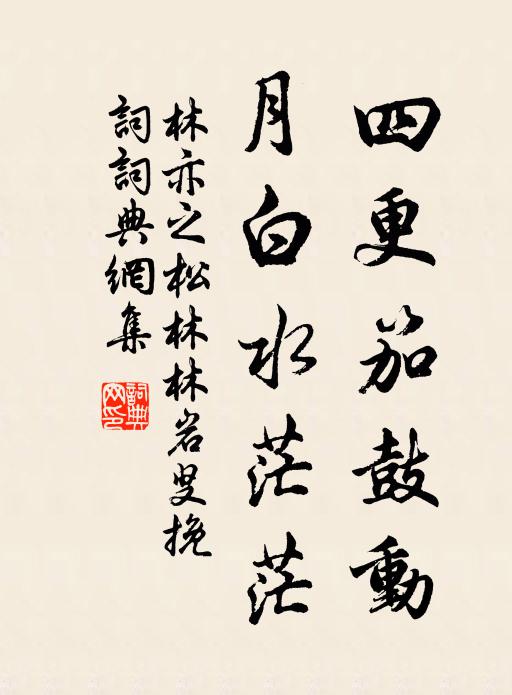 四更笳鼓動
月白水茫茫
林亦之松林林岩叟挽
詞詞典網集
詞典網印